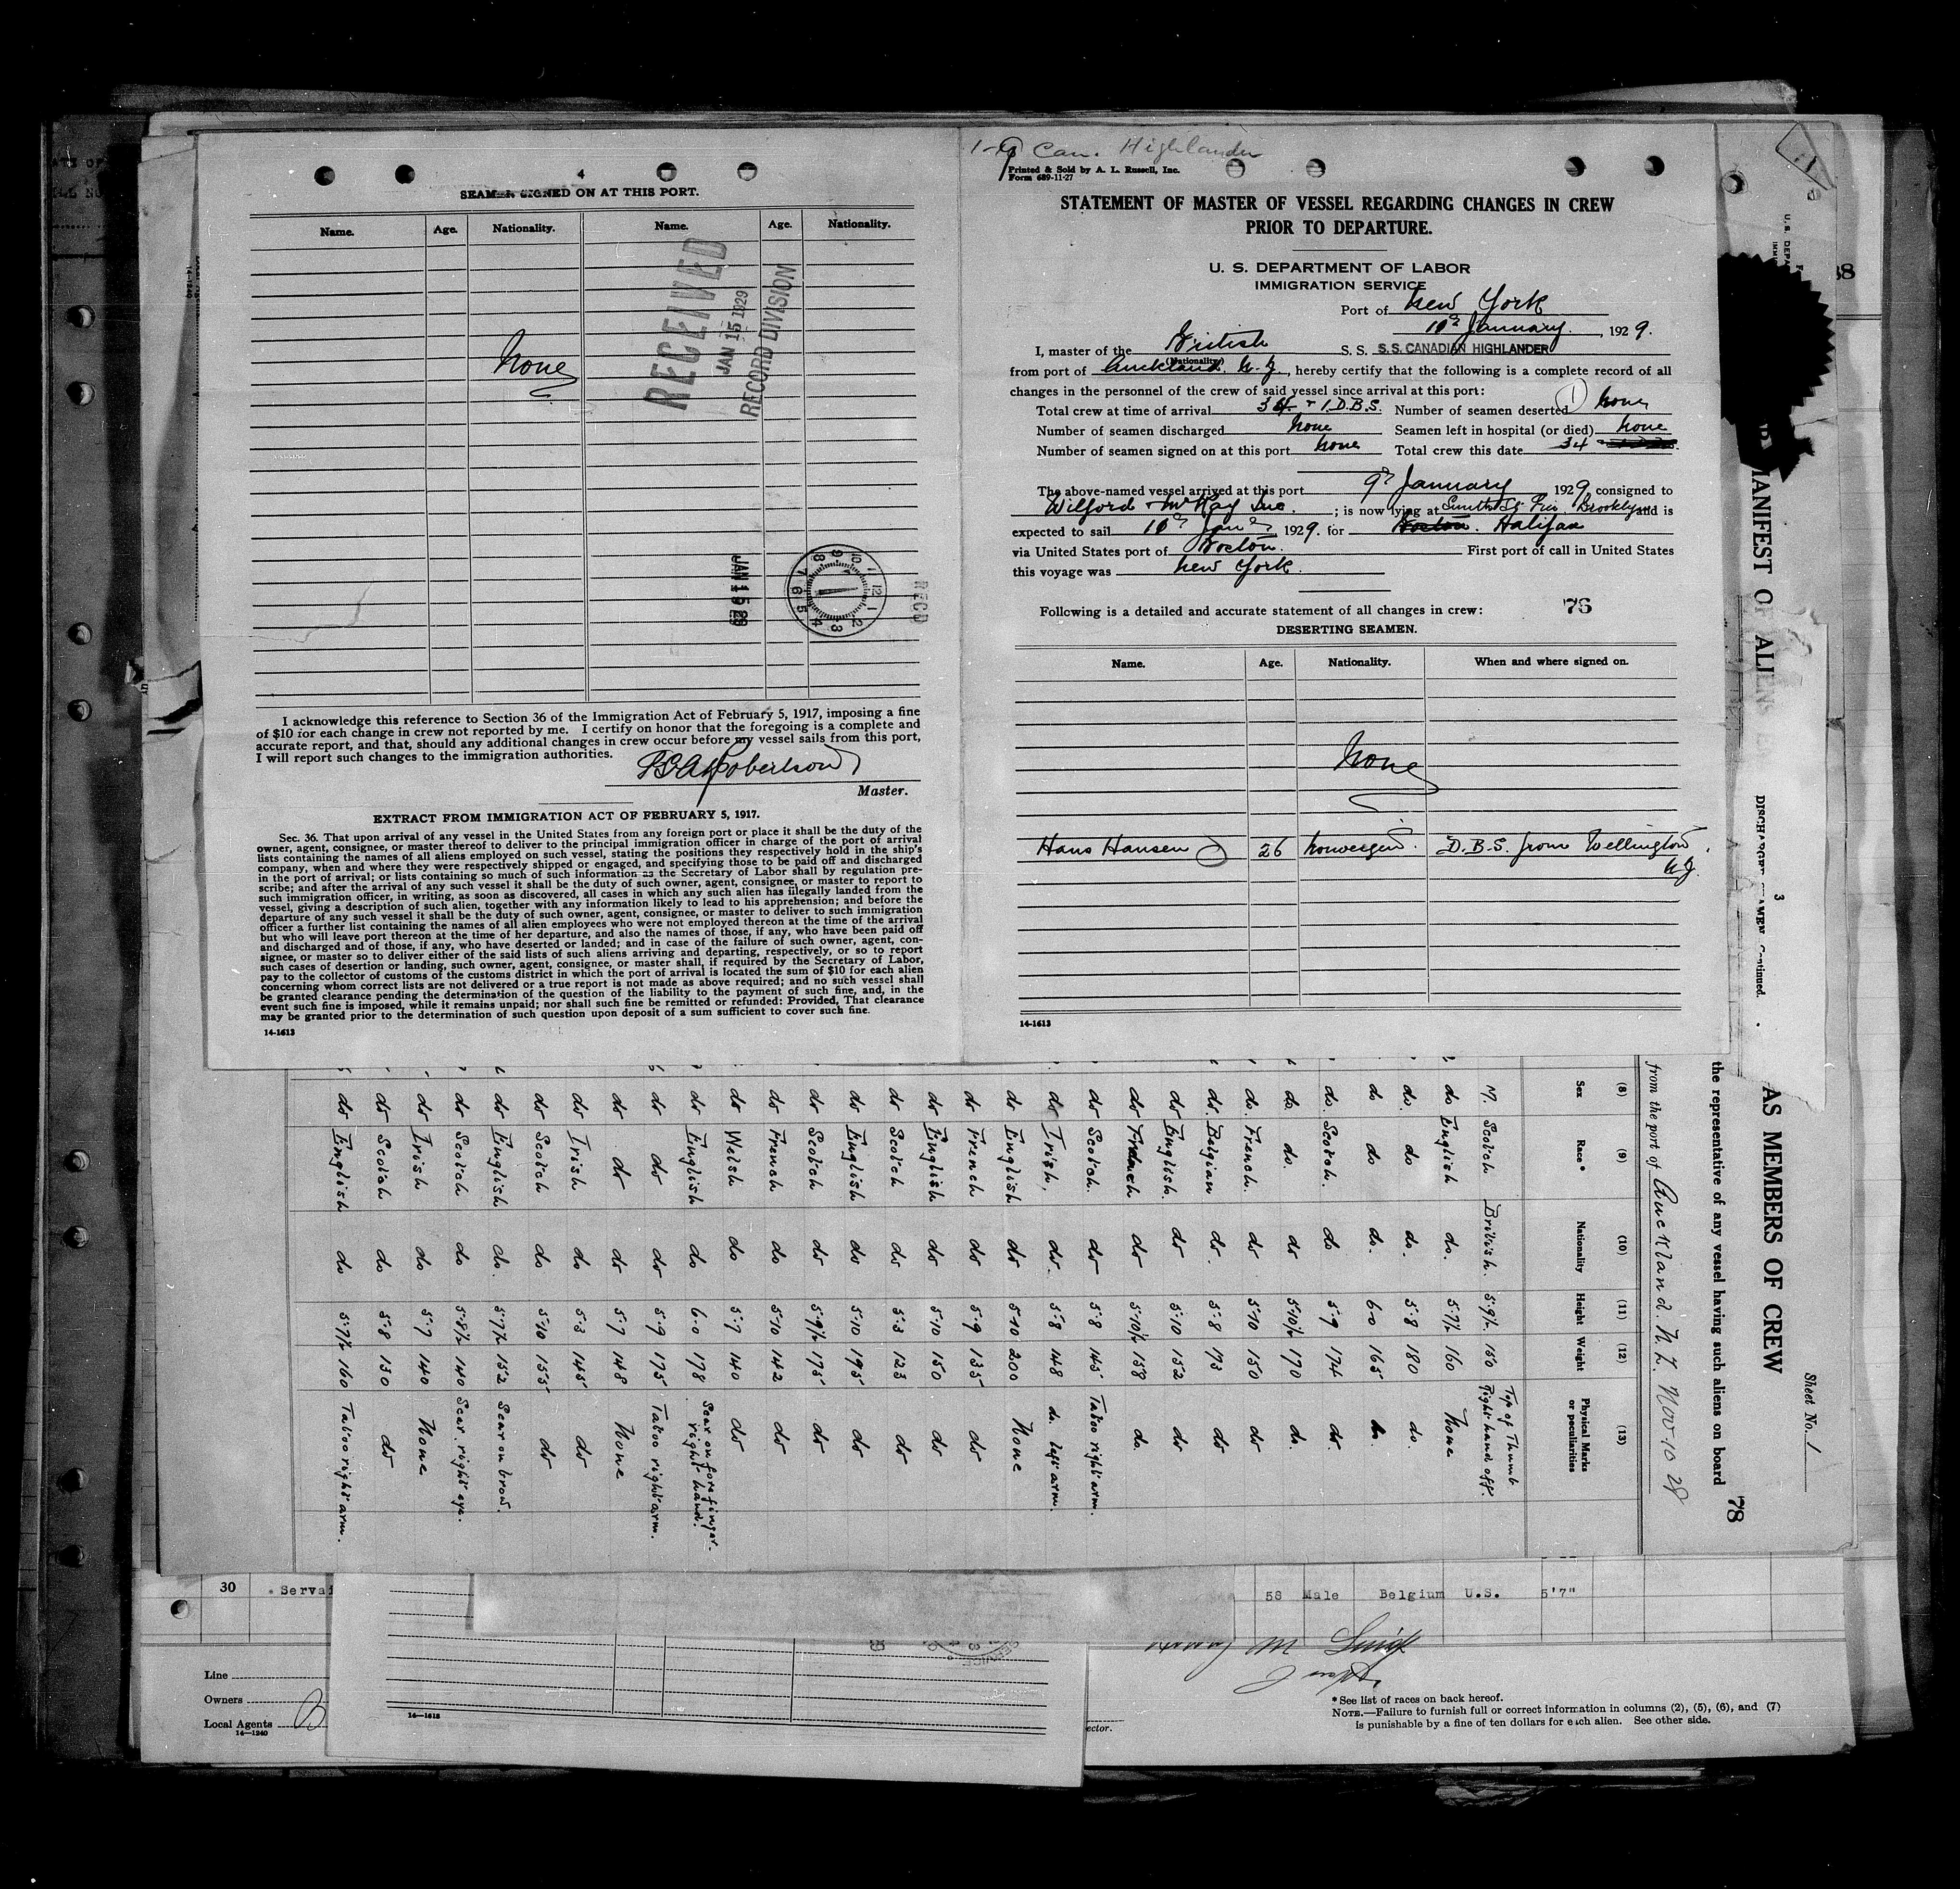 4
SEAMEN SIGNED ON AT THIS PORT.
Name. Age. Nationality. Name. Age. Nationality.
None
RECEIVED
JAN 15 1929
RECORD DIVISION
JAN 15 29
RECD
I acknowledge this reference to Section 36 of the Immigration Act of February 5, 1917, imposing a fine
of $10 for each change in crew not reported by me. I certify on honor that the foregoing is a complete and
accurate report, and that, should any additional changes in crew occur before my vessel sails from this port,
I will report such changes to the immigration authorities.
Robertson
Master.
EXTRACT FROM IMMIGRATION ACT OF FEBRUARY 5, 1917.
Sec. 36. That upon arrival of any vessel in the United States from any foreign port or place it shall be the duty of the
owner, agent, consignee, or master thereof to deliver to the principal immigration officer in charge of the port of arrival
lists containing the names of all aliens employed on such vessel, stating the positions they respectively hold in the ship's
company, when and where they were respectively shipped or engaged, and specifying those to be paid off and discharged
in the port of arrival; or lists containing so much of such information as the Secretary of Labor shall by regulation pre-
scribe; and after the arrival of any such vessel it shall be the duty of such owner, agent, consignee, or master to report to
such immigration officer, in writing, as soon as discovered, all cases in which any such alien has illegally landed from the
vessel, giving a description of such alien, together with any information likely to lead to his apprehension; and before the
departure of any such vessel it shall be the duty of such owner, agent, consignee, or master to deliver to such immigration
officer a further list containing the names of all alien employees who were not employed thereon at the time of the arrival
but who will leave port thereon at the time of her departure, and also the names of those, if any, who have been paid off
and discharged and of those, if any, who have deserted or landed; and in case of the failure of such owner, agent, con-
signee, or master so to deliver either of the said lists of such aliens arriving and departing, respectively, or so to report
such cases of desertion or landing, such owner, agent, consignee, or master shall, if required by the Secretary of Labor,
pay to the collector of customs of the customs district in which the port of arrival is located the sum of $10 for each alien
concerning whom correct lists are not delivered or a true report is not made as above required; and no such vessel shall
be granted clearance pending the determination of the question of the liability to the payment of such fine, and, in the
event such fine is imposed, while it remains unpaid; nor shall such fine be remitted or refunded: Provided, That clearance
may be granted prior to the determination of such question upon deposit of a sum sufficient to cover such fine.
14-1613
1-9 Can. Highlander
Printed & Sold by A. L. Russell, Inc.
Form 689-11-27
STATEMENT OF MASTER OF VESSEL REGARDING CHANGES IN CREW
PRIOR TO DEPARTURE.
U. S. DEPARTMENT OF LABOR
IMMIGRATION SERVICE
Port of New York
10th January, 1929.
I, master of the British S. S. S.S. CANADIAN HIGHLANDER
(Nationality)
from port of Auckland. N.Z, hereby certify that the following is a complete record of all
changes in the personnel of the crew of said vessel since arrival at this port:
Total crew at time of arrival 34 + 1 D.B.S. Number of seamen deserted 1 none
Number of seamen discharged none Seamen left in hospital (or died) none
Number of seamen signed on at this port none Total crew this date 34
The above-named vessel arrived at this port 9th January 1929 consigned to
Wilford & McKay Inc. ; is now lying at Smith St Pier. Brooklyn and is
expected to sail 10th Jany 1929. for Boston. Halifax
via United States port of Boston. First port of call in United States
this voyage was New York.
Following is a detailed and accurate statement of all changes in crew: 76
DESERTING SEAMEN.
Name. Age. Nationality. When and where signed on.
None
Hans Hansen 26 Norwegian. D.B.S. from Wellington
N.Z.
14-1613
MANIFEST OF ALIENS
3
DISCHARGED SEAMEN Continued.
AS MEMBERS OF CREW
Sheet No. 1
the representative of any vessel having such aliens on board
78
from the port of Auckland. N.Z. Nov 10 28
(8) (9) (10) (11) (12) (13)
Sex Race* Nationality Height Weight Physical Marks or peculiarities
M. Scotch British. 5.9½ 150 Top of Thumb Right hand off.
do English do. 5.7½ 160 None
do. do do. 5.8 180 do.
do do do. 6-0 165
do. Scotch. do 5.9 174 do.
do. do. do 5.10½ 170 do.
do. French. do 5.10 150 do
do. Belgian do. 5.8 173 do
do English. do 5.10 152 do.
do French do 5.10½ 158 do.
do Scotch. do 5.8 145 Tatoo right arm.
do Irish, do. 5.8 148 do. left arm.
do English do 5.10 200 None
do French do 5.9 135 do
do English do 5.10 150 do
do Scotch do 5.3 123 do
do English do 5.10 195 do
do Scotch do 5.9½ 175 do
do French do 5.10 142 do
do Welsh do 5.7 140 do
do English do 6-0 178 Scar on fore finger. right hand.
do do do 5.9 175 Tatoo right arm.
do do do 5.7 148 None
do Irish do 5.3 145 do
do Scotch do 5.10 155 do
do English do. 5.7½ 152 Scar on brow.
do Scotch do 5.8½ 140 Scar right eye.
do Irish do 5.7 140 None
do Scotch do 5.8 130 do
do English do 5.7½ 160 Tatoo right arm.
30 Servai 58 Male Belgium U.S. 5'7"
Line
Owners
Local Agents
14—1240
14—1613
ector.
*See list of races on back hereof.
NOTE.—Failure to furnish full or correct information in columns (2), (5), (6), and (7)
is punishable by a fine of ten dollars for each alien. See other side.